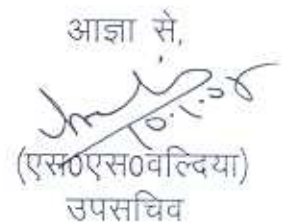 आज्ञा से,
(एस0एस0वल्दिया)
उपसचिव